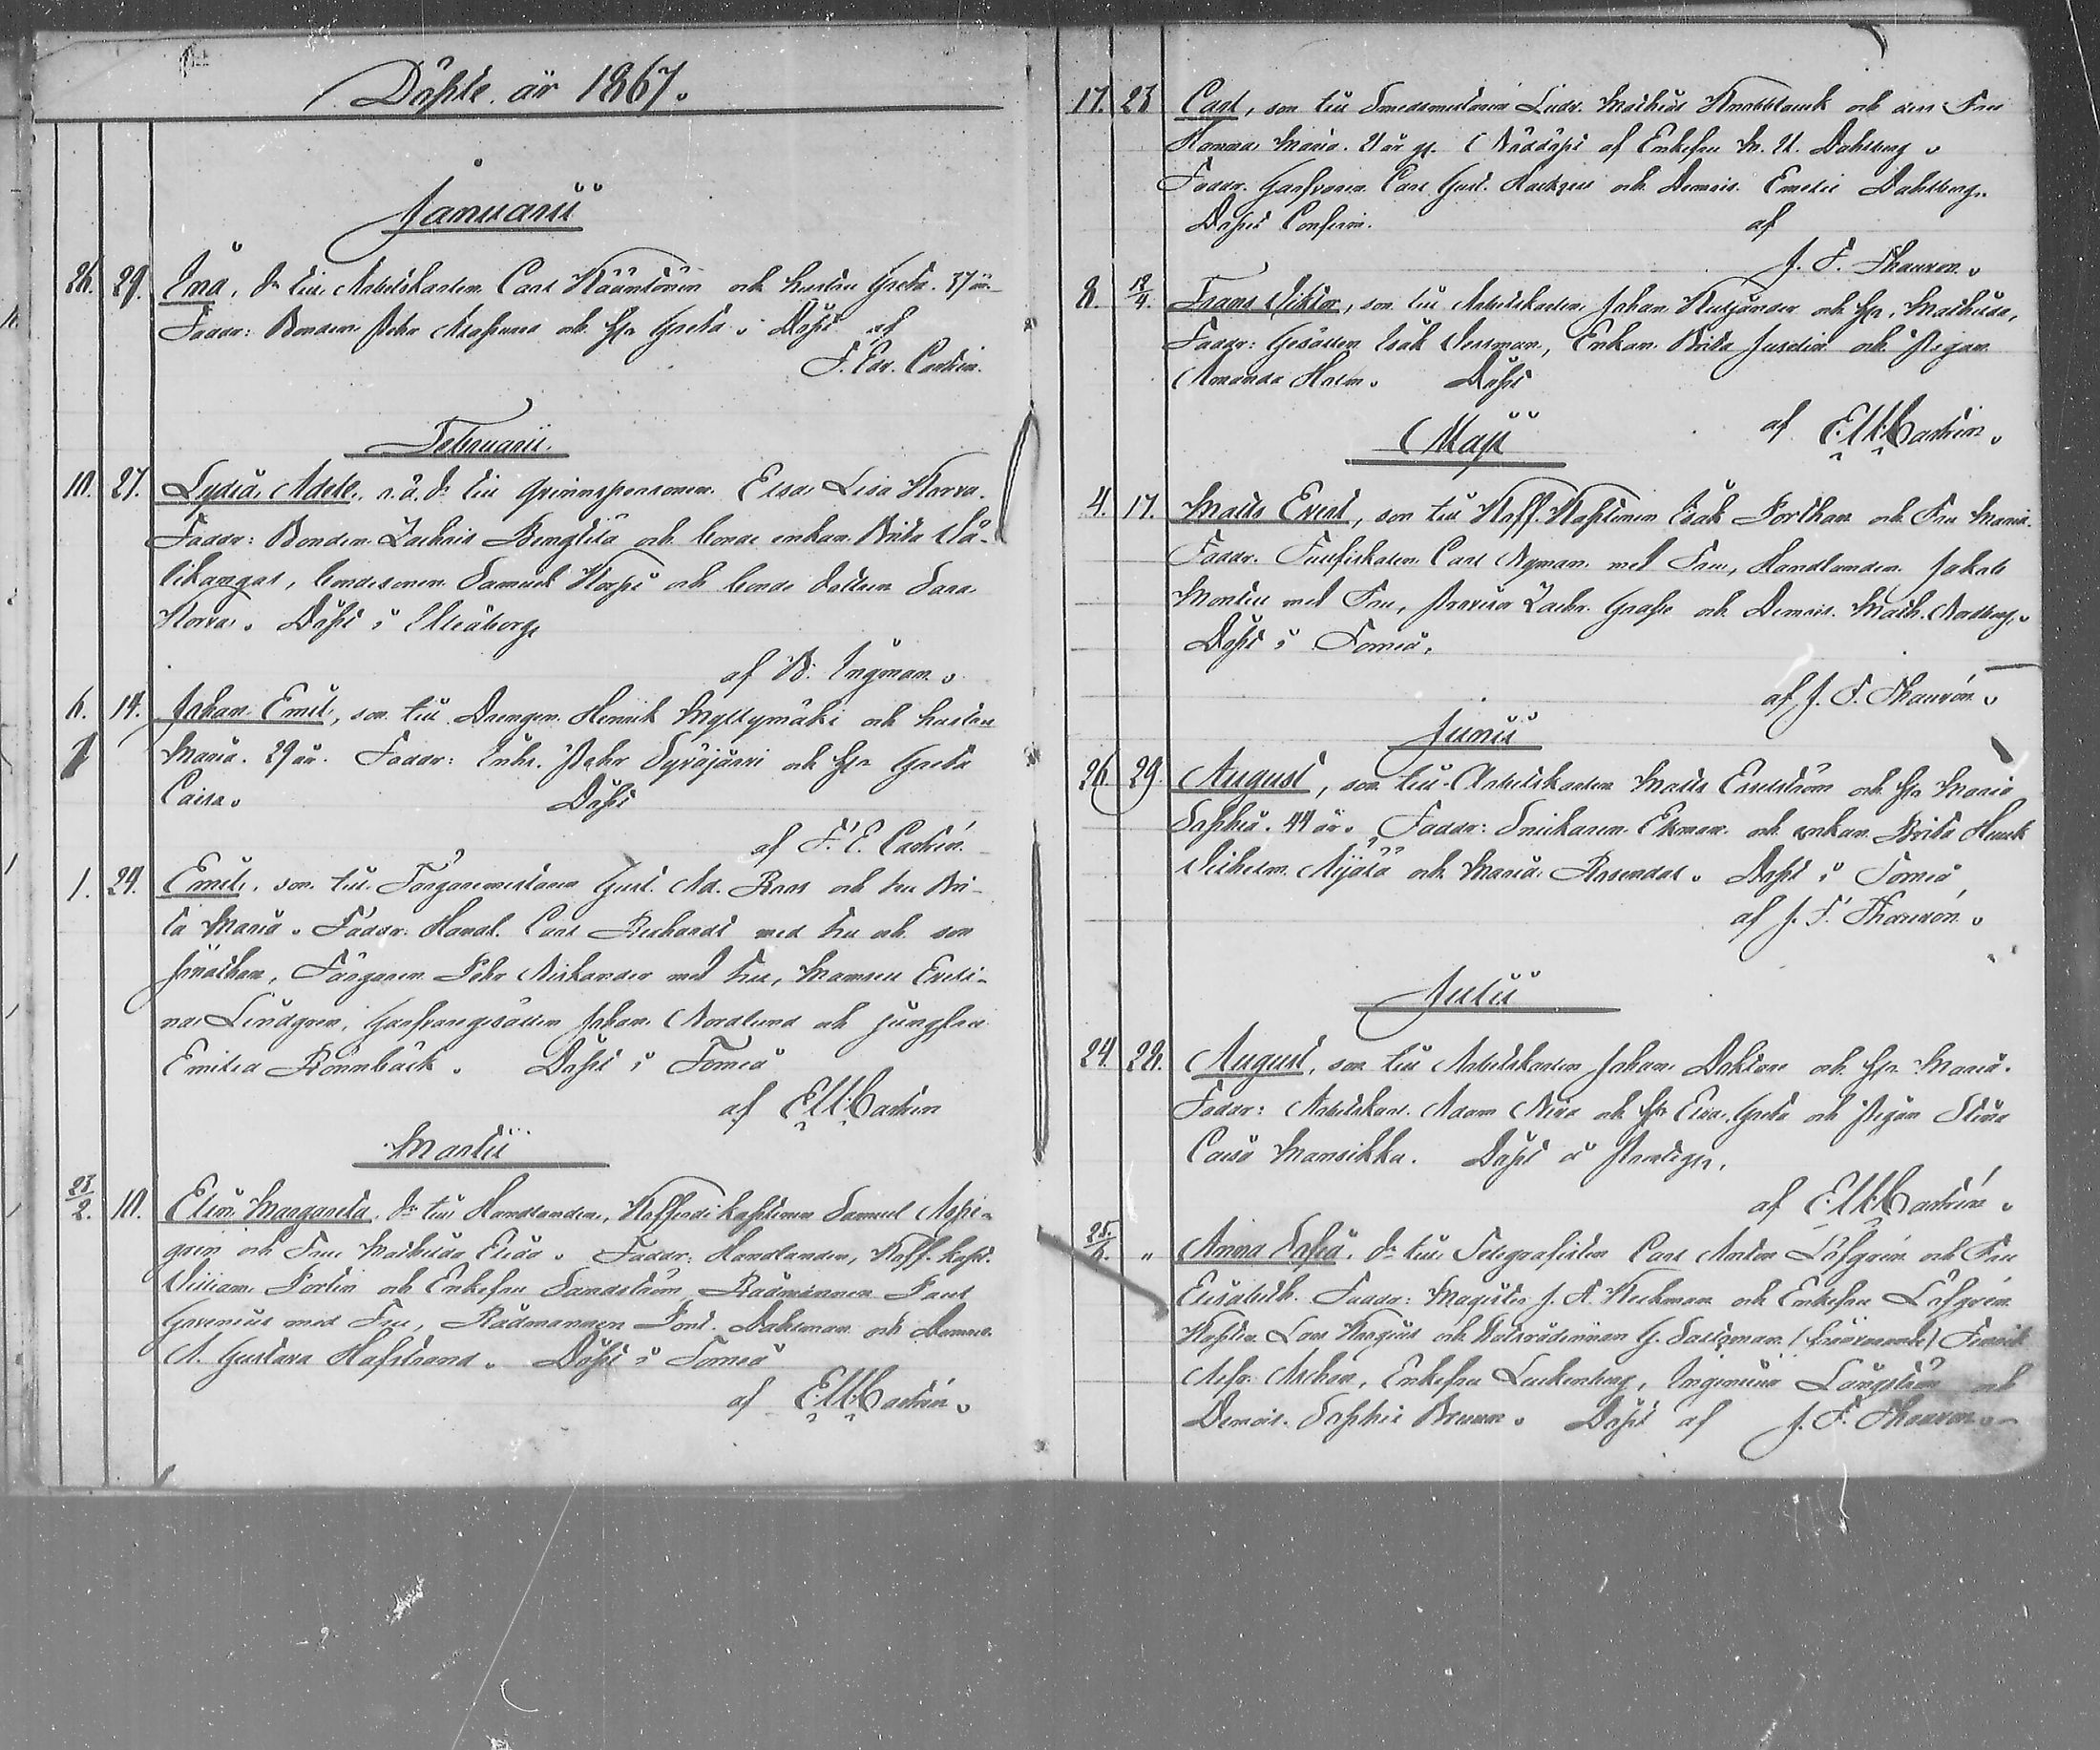 Döpte år 1867.
Januarii
26. 29. Ina, dr till Arbetskarlen Carl Kääntönen och hustru Greta. 37 år
Faddr: Bonden Pehr Maspuro och hu Greta. Döpt af
F. Edv. Castrén.
Februarii.
10. 27. Lydia Adele, o.ä. dr till qvinnspersonen Elsa Lisa Korva.
Faddr: Bonden Zachris Bengtilä och bonde enkan Brita
likangas, bondesonen Samuel Korpi och bonde dottern Sara
Korva. Döpt i Uleåborg
af B. Ingman.
6. 14. Johan Emil, son till Drengen Henrik Myllymäki och hustru
Maria. 29 år. Faddr: Inhs. Pehr Syväjärvi och hu Greta
Caisa. Döpt
af F. E. Castrén.
1. 24. Emil, son till Färgaremästaren Gust. Ad. Roos och fru Bri-
ta Maria. Faddr: Handl. Carl Richardt med fru och son
Jonathan, Färgaren Pehr Niskander med fru, Mamsell Eveli-
na Lindgren, Garfvaregesällen Johan Nordlund och jungfru
Emilia Rönnbäck. Döpt i Torneå
af E. M. Castrén
Martii
23/2. 10. Elin Margareta, dr till Handlanden, Kofferdikaptenen Samuel Aspe-
gren och Fru Mathilda Elisa. Faddr: Handlanden, Koff. kapt.
William Portin och Enkefru Sandström, Rådmannen Paul
Grevenius med Fru, Rådmannen Pont. Dahlman och Demois.
A. Gustava Hafstrand. Döpt i Torneå
af E. M. Castrén.
17. 23 Carl, son till Smedmästaren Ludv. Mathias Knabblauck och dess Fru
Hanna Maria. 21 år g. Nöddöpt af Enkefru M. U. Dahlberg.
Faddr. Garfvaren Carl Gust. Hackzell och Demois. Emelie Dahlberg.
Dopet Confirm. af
J. F. Thauvon.
8. 12/4. Frans Viktor, son till Arbetskarlen Johan Kutjander och hu. Mathilda,
Faddr: Gesällen Isak Vessman, Enkan Brita Juselin och Pigan
Amanda Holm. Döpt
af E. M. Castrén.
Maji
4. 17. Matts Evert, son till Koff. Kaptenen Isak Porthan och Fru Maria.
Faddr. Tullfiskalen Carl Nyman med Fru, Handlanden Jakob
Montell med Fru, Provisor Zachr. Grape och Demois. Math. Nordberg.
Döpt i Torneå,
af J. F. Thauvón.
Junii
26. 29. August, son till Arbetskarlen Matts Enström och hu Maria
Sophia. 44 år. Faddr: Snickaren Ekman och enkan Brita
Vilhelm. Nijälä och Maria Rosendal. Döpt i Torneå,
af J. F. Thauvón.
Julii
24. 28. August, son till Arbetskarlen Johan Doktare och hu Maria.
Faddr: Arbetskarl. Adam Niva och hu Eva Greta och Pigan Stina
Caisa Mansikka. Döpt å Prestgn,
af E. M. Castrén.
25./6. " Anna Sofia, dr till Telegrafisten Carl Anton Löfgrén och Fru
Elisabeth. Faddr: Magister J. A. Heikman och Enkefru Löfgrén
Kapten Lars Krogius och Hofrådinnan G. Sallzman (frånvarande)
Enkefru Leukenberg, Ingeniör Långström och
Demois. Sophie Bruun. Döpt af J. F. Thauvon.